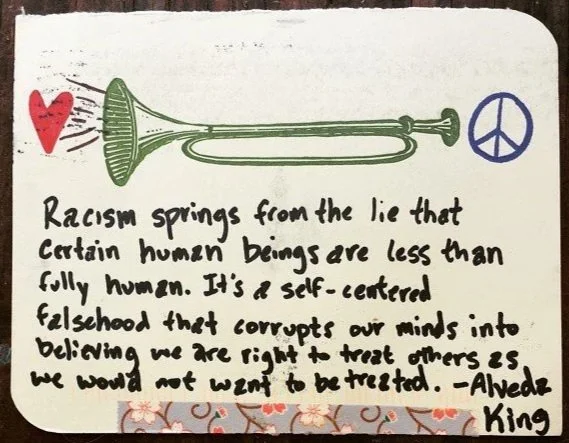 Racism springs from the lie that
certain human beings are less than
fully human. It's a self-centered
falsehood that corrupts our minds into
believing we are right to treat others as
we would not want to be treated. -Alveda
King